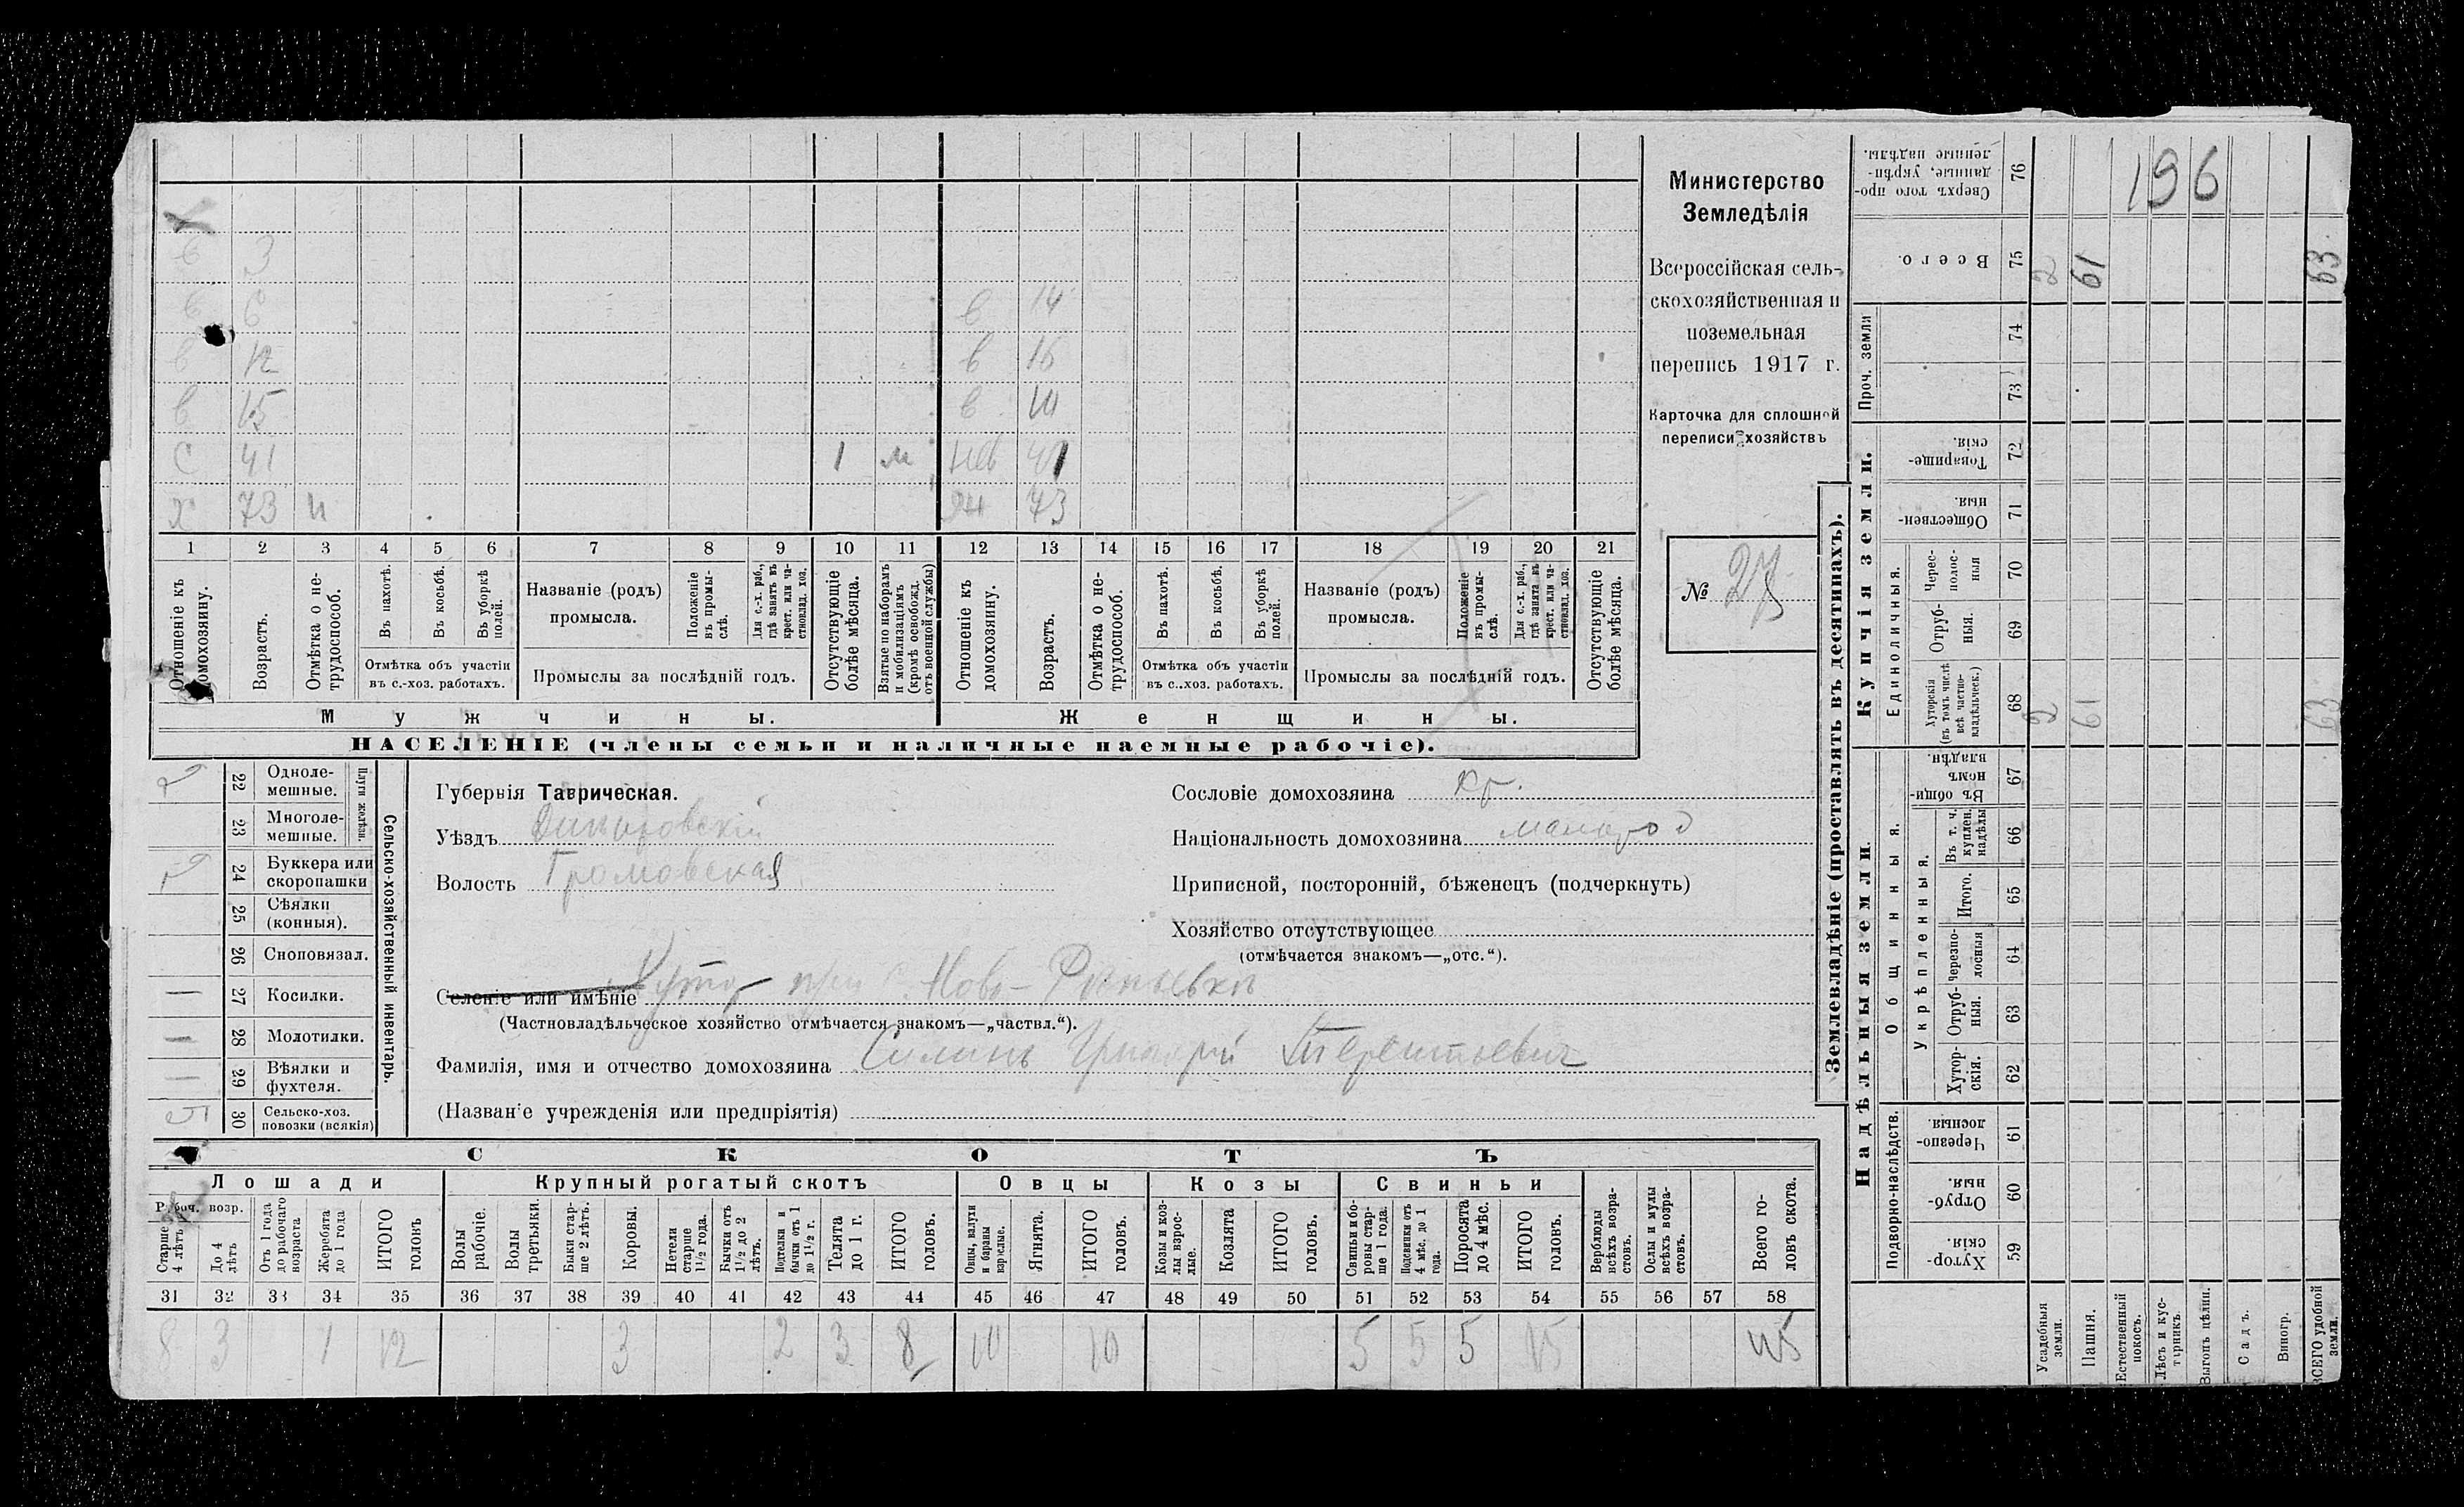 196
Министерство
Земледѣлія
Всероссійская сель-
скохозяйственная и
поземельная
перепись 1917 г.
Карточка для сплошной
переписи хозяйствъ
№ 27
в 3
в 6 в 14
в 12 в 16
в 15 в
с 41 1 м 41
х 73 н 73
1 2 3 4 5 6 7 8 9 10 11 12 13 14 15 16 17 18 19 20 21
Отношеніе къ домохозяину.
Возрастъ.
Отмѣтка о не-трудоспособ.
Въ пахотѣ.
Въ косьбѣ.
Въ уборкѣ полей.
Отмѣтка объ участіи
въ с.-хоз. работахъ.
Названіе (родъ)
промысла.
Положеніе въ промы-слѣ.
Для с.-х. раб., гдѣ занятъ въ крест. или ча-стновлад. хоз.
Промыслы за послѣдній годъ.
Отсутствующіе болѣе мѣсяца.
Взятые по наборамъ и мобилизаціямъ (кромѣ освобожд. отъ военной службы)
Отношеніе къ домохозяину.
Возрастъ.
Отмѣтка о не-трудоспособ.
Въ пахотѣ.
Въ косьбѣ.
Въ уборкѣ полей.
Отмѣтка объ участіи
въ с..хоз. работахъ.
Названіе (родъ)
промысла.
Положеніе въ промы-слѣ.
Для с.-х. раб., гдѣ занята въ крест. или ча-стновлад. хоз.
Промыслы за послѣдній годъ.
Отсутствующіе болѣе мѣсяца.
Мужчины. Женщины.
НАСЕЛЕНІЕ (члены семьи и наличные наемные рабочіе).
22 Одноле-мешные.
23 Многоле-мешные.
Плуги желѣзн.
24 Буккера или скоропашки
25 Сѣялки (конныя).
26 Сноповязал.
27 Косилки.
28 Молотилки.
29 Вѣялки и фухтеля.
30 Сельско-хоз. повозки (всякія)
Сельско-хозяйственный инвентарь.
Губернія Таврическая.
Уѣздъ
Волость Громовская
Селеніе или имѣніе Хутор при Ново-
(Частновладѣльческое хозяйство отмѣчается знакомъ—„частвл.“).
Фамилія, имя и отчество домохозяина Григорій Терентьевич
(Названіе учрежденія или предпріятія)
Сословіе домохозяина кр.
Національность домохозяина малорос
Приписной, посторонній, бѣженецъ (подчеркнуть)
Хозяйство отсутствующее
(отмѣчается знакомъ—„отс.“).
СКОТЪ
Лошади Крупный рогатый скотъ Овцы Козы Свиньи
Рабоч. возр.
Старше 4 лѣтъ
До 4 лѣтъ
Отъ 1 года до рабочаго возраста
Жеребята до 1 года
ИТОГО головъ
Волы рабочіе.
Волы третьяки.
Быки стар-ше 2 лѣтъ.
Коровы.
Нетели старше 1½ года.
Бычки отъ 1½ до 2 лѣтъ.
Подтелки и бычки отъ 1 до 1½ г.
Телята до 1 г.
ИТОГО головъ.
Овцы, валухи и бараны взрослые.
Ягнята.
ИТОГО головъ.
Козы и коз-лы взрос-лые.
Козлята
ИТОГО головъ.
Свиньи и бо-ровы стар-ше 1 года.
Подсвинки отъ 4 мѣс. до 1 года.
Поросята до 4 мѣс.
ИТОГО головъ.
Верблюды всѣхъ возра-стовъ.
Ослы и мулы всѣхъ возра-стовъ.
Всего го-ловъ скота.
31 32 33 34 35 36 37 38 39 40 41 42 43 44 45 46 47 48 49 50 51 52 53 54 55 56 57 58
8 3 1 12 3 2 3 8 10 10 5 5 5 15 45
Землевладѣніе (проставлять въ десятинахъ).
Надѣльныя земли
Подворно-наслѣдств.
Хутор-скія. 59
Отруб-ныя. 60
Черезпо-лосныя. 61
Общинныя.
Укрѣпленныя.
Хутор-скія. 62
Отруб-ныя. 63
Черезпо-лосныя 64
Итого. 65
Въ т. ч. куплен. надѣлы 66
Въ общи-номъ владѣн. 67
Купчія земли.
Единоличныя.
Хуторскія (въ томъ числѣ всѣ частно-владѣльческ.) 68 2 61 63
Отруб-ныя. 69
Черес-полос-ныя 70
Обществен-ныя. 71
Товарище-скія. 72
Проч. земли
73
74
Всего. 75 2 61 63
Сверхъ того про-данные, укрѣп-ленные надѣлы. 76
Усадебныя земли.
Пашня.
Естественный покосъ.
Лѣсъ и кус-тарникъ
Выгонъ цѣлин.
Садъ.
Виногр.
ВСЕГО удобной земли.